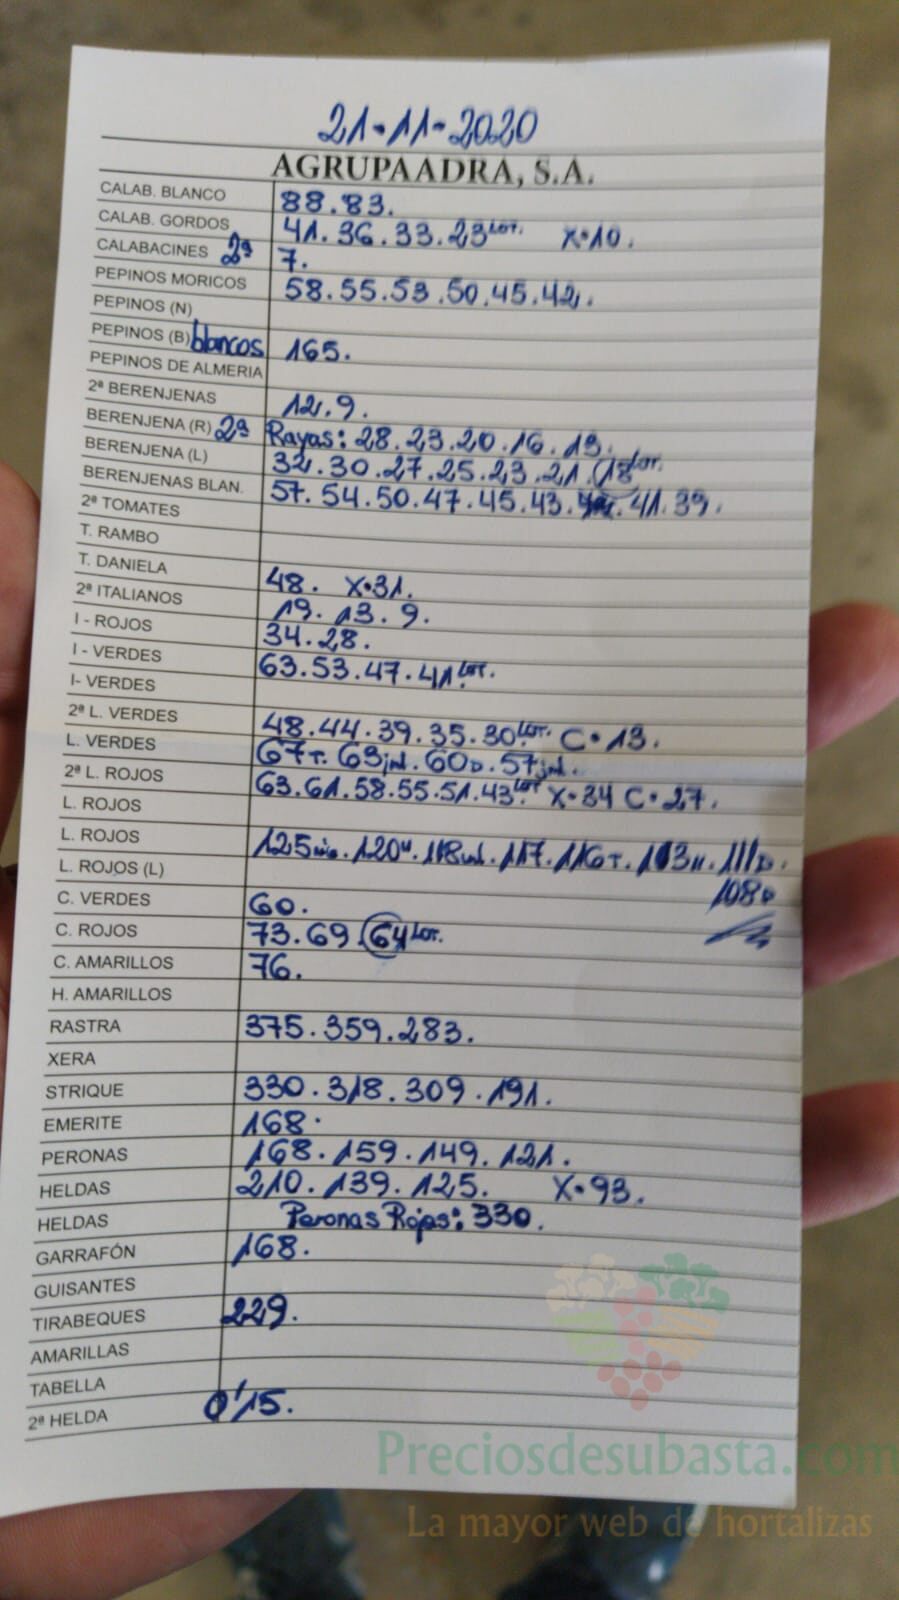 21-11-2020
AGRUPAADRA, S.A.
CALAB. BLANCO 88.83.
CALAB. GORDOS 41.36.33.23 LOT. X·10.
CALABACINES 2ª 7.
PEPINOS MORICOS 58.55.53.50.45.42.
PEPINOS (N)
PEPINOS (B) blancos 165.
PEPINOS DE ALMERIA
2ª BERENJENAS 12.9.
BERENJENA (R) 2ª Rayas: 28.23.20.16.13.
BERENJENA (L) 32.30.27.25.23.21.18 LOT.
BERENJENAS BLAN. 57.54.50.47.45.43. 41.39.
2ª TOMATES
T. RAMBO
T. DANIELA 48. X·31.
2ª ITALIANOS 19.13.9.
I - ROJOS 34.28.
I - VERDES 63.53.47.41 LOT.
I- VERDES
2ª L. VERDES 48.44.39.35.30 LOT. C·13.
L. VERDES 67T. 63jul. 60D. 57jul.
2ª L. ROJOS 63.61.58.55.51.43 LOT X·34 C·27.
L. ROJOS
L. ROJOS 125 . 120 . 118 . 117. 116T. 113 . 111D.
L. ROJOS (L) 108D
C. VERDES 60.
C. ROJOS 73.69.64 LOT.
C. AMARILLOS 76.
H. AMARILLOS
RASTRA 375.359.283.
XERA
STRIQUE 330.318.309.191.
EMERITE 168.
PERONAS 168.159.149.121.
HELDAS 210.139.125. X·93.
HELDAS Peronas Rojas: 330.
GARRAFÓN 168.
GUISANTES
TIRABEQUES 229.
AMARILLAS
TABELLA
2ª HELDA 0'15.
Preciosdesubasta.com
La mayor web de hortalizas